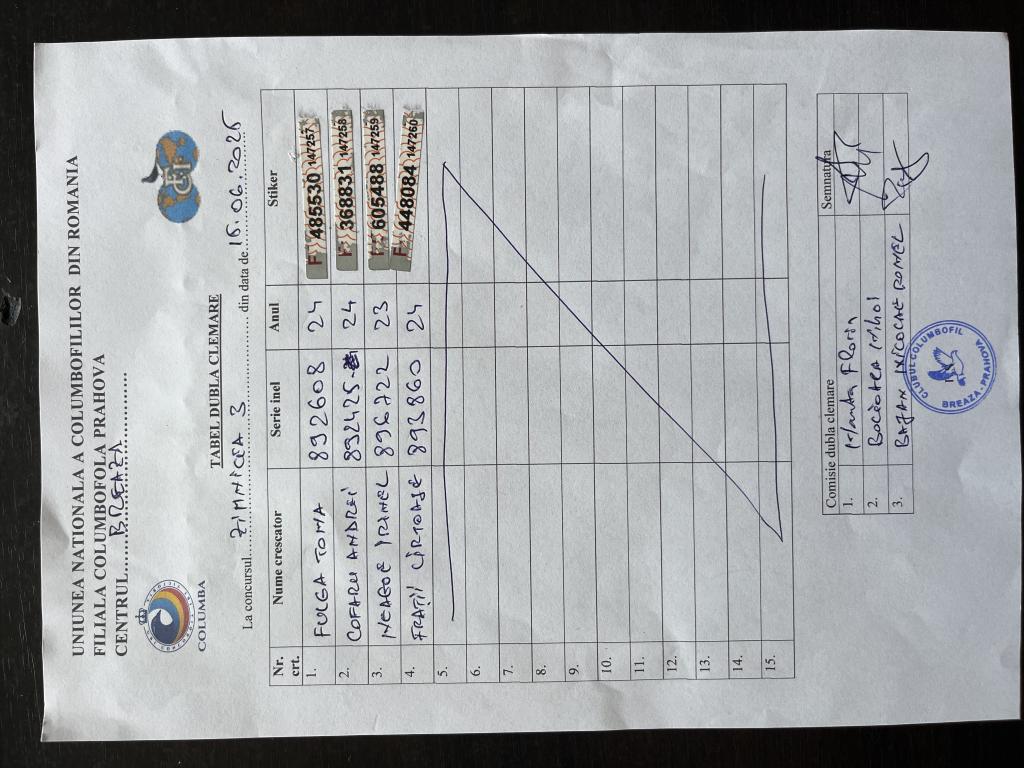 UNIUNEA NATIONALA A COLUMBOFILILOR DIN ROMANIA
FILIALA COLUMBOFOLA PRAHOVA
CENTRUL......BREAZA......
COLUMBA
FCI
TABEL DUBLA CLEMARE
La concursul....ZIMNICEA 3.... din data de.16.06.2025
Nr. crt. Nume crescator Serie inel Anul Stiker
1. FULGA TOMA 892608 24 F 485530 147257
2. COFARU ANDREI 892425 24 F 368831 147258
3. NEAGOE IRINEL 896722 23 F 605488 147259
4. FRAȚII CÎRTOAJE 893860 24 F 448084 147260
5.
6.
7.
8.
9.
10.
11.
12.
13.
14.
15.
Comisie dubla clemare Semnatura
1. Manta Florin
2. Bocioaca Mihai
3. BAJAN NICOLAE ROMEL
CLUBUL COLUMBOFIL
BREAZA - PRAHOVA